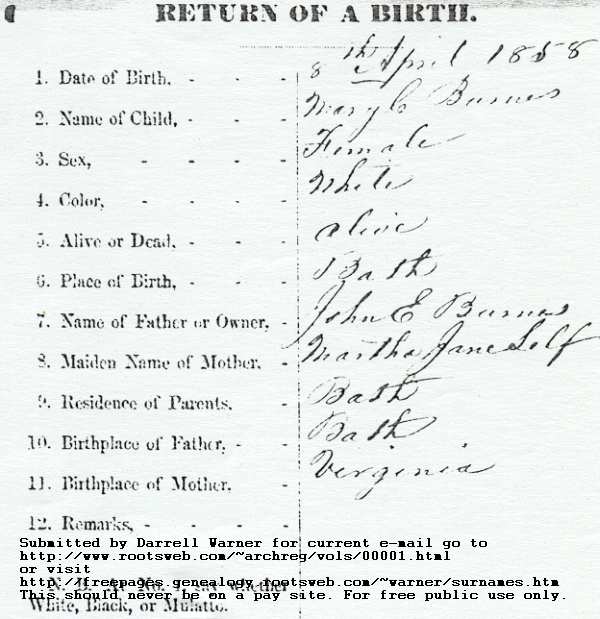 RETURN OF A BIRTH.
1. Date of Birth, - - - 8th April 1858
2. Name of Child, - - - Mary C Burnes
3. Sex, - - - - Female
4. Color, - - - - White
5. Alive or Dead, - - - alive
6. Place of Birth, - - - Bath
7. Name of Father or Owner, - John E Burnes
8. Maiden Name of Mother. - Martha Jane Self
9. Residence of Parents. - Bath
10. Birthplace of Father, - - Bath
11. Birthplace of Mother. - Virginia
12. Remarks, - - - -
Submitted by Darrell Warner for current e-mail go to
http://www.rootsweb.com/~archreg/vols/00001.html
or visit
http://freepages.genealogy.rootsweb.com/~warner/surnames.htm
N. B. At No. 4, whether
This should never be on a pay site. For free public use only.
White, Black, or Mulatto.